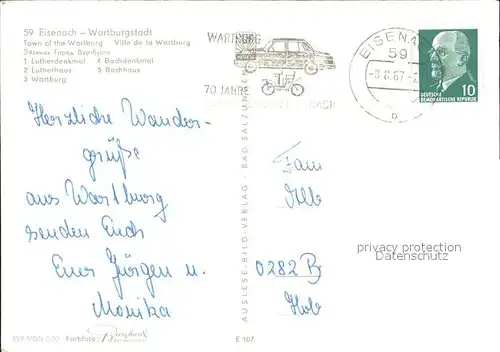 59 Eisenach — Wartburgstadt
Town of the Wartburg Ville de la Wartburg
Эйзенах Город Вартбурга
1 Lutherdenkmal 4 Bachdenkmal
2 Lutherhaus 5 Bachhaus
3 Wartburg
WARTBURG
70 JAHRE
EISENA
59
67
DEUTSCHE
DEMOKRATISCHE REPUBLIK
10
Herzliche Wander-
grüße
aus Wartburg
senden Euch
Euer Jürgen u.
Monika
Fam
0282
AUSLESE-BILD-VERLAG · BAD SALZUNGEN
privacy protection
Datenschutz
Farbfoto:
E 107